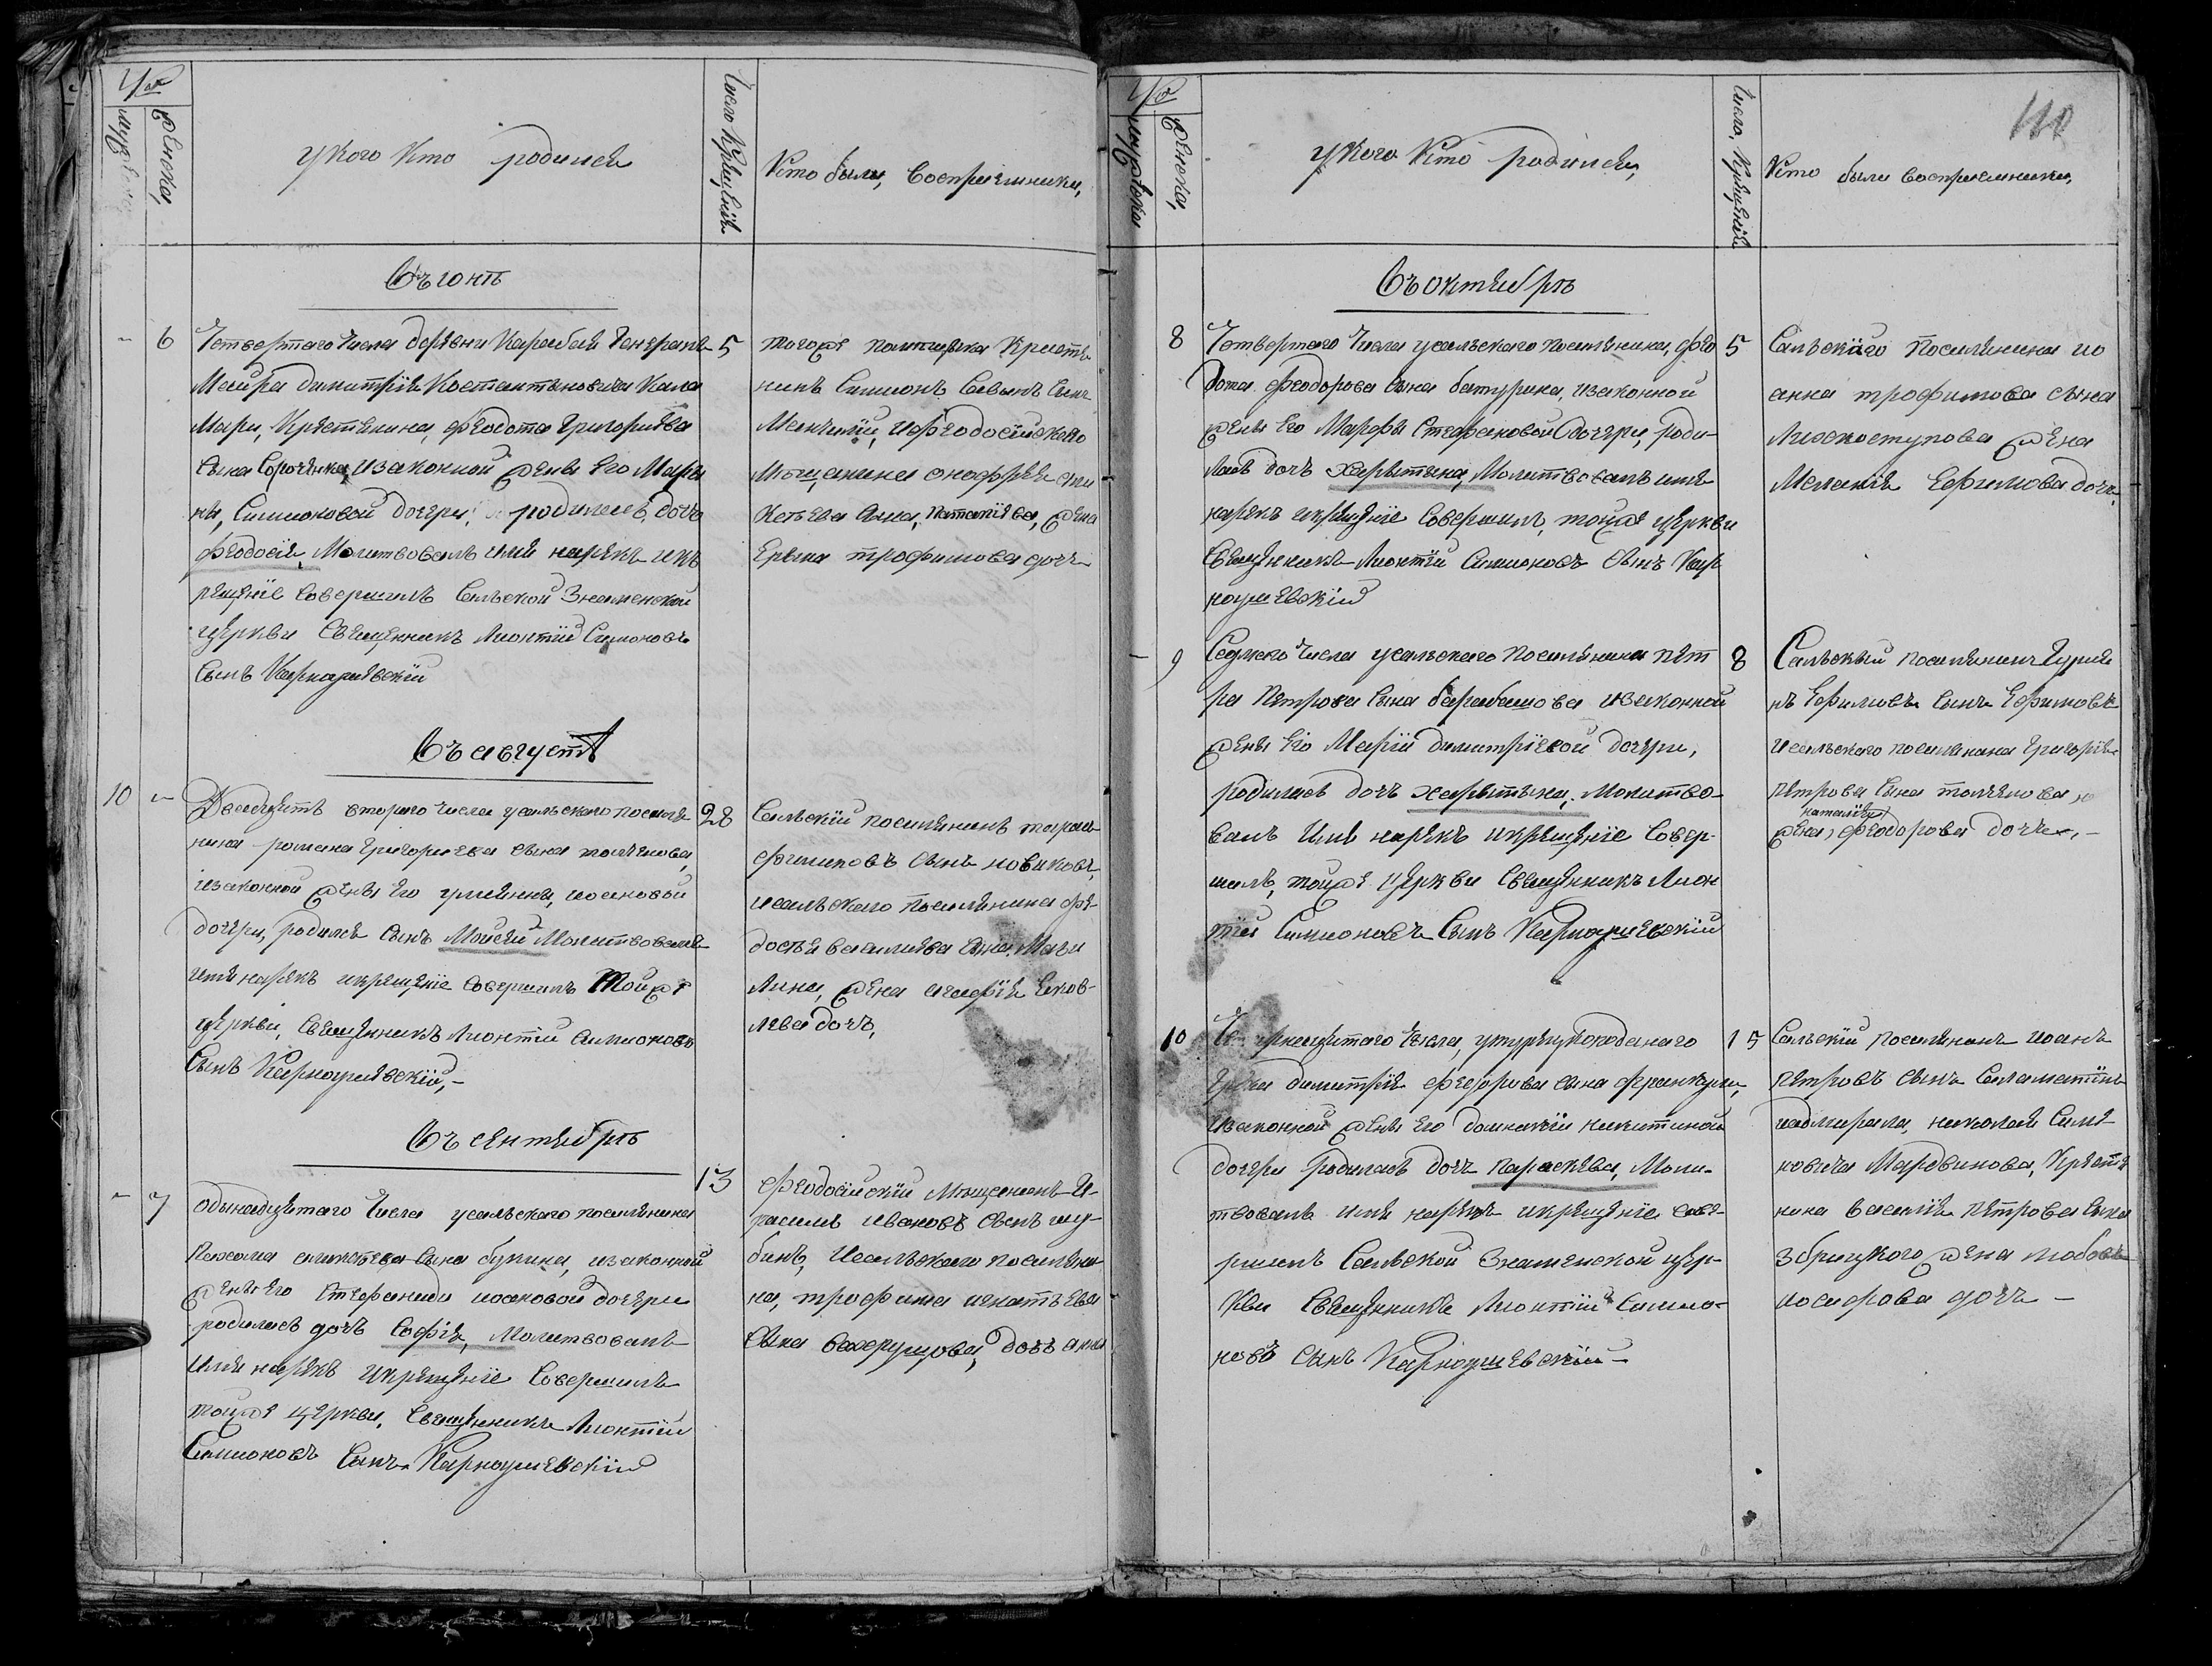 Чо
мужска
женска,
укого кто родился
Число Крещенія
Кто были, Восприемники,
Въ юнѣ
6
Четвертаго Числа деревни Карабая Генерала
Маіора димитрія Костантыновича Кала
Мари, Крестянина, феодота Григориева
Сына Сороченка, изаконной жены Его Мары
ны, Симионовой дочери, родилась дочь
феодосія, Молитвовалъ имя нарекъ икъ
рещеніе Совершилъ Салской Знаменской
церкви Священникъ Лионтіи Симионовъ
Сынъ Карнаушевскій
5
тогоже памещика Кристя
нинъ Симионъ Савынъ Сынъ
ифеодосійскаго
Мещанина онофрея
Сына, жена
Ерына трофимова дочь
Въ августѣ
10
Двадцять второго числа усалскаго поселя
нина романа Григориева сына толчнова,
изаконной жены его улиянны, иоановой
дочери, родился Сынъ Моисей Молитвовалъ
имя нарекъ икрещеніе Совершилъ Тойже
церкви, Священникъ Лионтіи Симионовъ
Сынъ Карнаушевскій, –
28
Салскій поселянинъ тарас
филиповъ Сынъ новиковъ,
исалскаго поселянина фе
досѣя василиева сына Мали
лина, жена агафія Яков-
лева дочь,
Въ сентябрѣ
7
одынадцятаго Числа усалскаго поселянина
Пахома сына бупина, изаконной
жены его Стефаниды иоановой дочери
родилась дочь Софія, Молитвовалъ
Имя нарекъ икрещеніе Совершилъ
тойже церкви, Священникъ Лионтіи
Симионовъ Сынъ Карнаушевскій
13
феодосійскіи Мещенинъ И-
расимъ ивановъ Сынъ шу-
бинъ, Исалскаго поселяни-
на, трофима игнатьева
Сына вахрушова, дочь анна
Чо
мужска
женска,
укого кто родился,
Число, Крещенія
Кто были восприемники,
110
Въ октябрѣ
8
Четвертаго Числа усалскаго поселянина, фео
дота феодорова Сына батурина, изаконной
жены Его Марфы Стефановой дочери, роди-
лась дочь харытына, Молитвовалъ имя
нарекъ икрещеніе Совершилъ, тойже церкви
Священникъ Лионтій Симионовъ Сынъ Кар
наушевскій
5
Салскаго Поселянина ио
анна трофимова сына
Лихоступова жена
Меланія Ефимова дочь,
9
Седмого Числа усалскаго Поселянина пет
ра Петрова Сына барабашова изаконной
жены Его Маріи димитріевой дочери,
родилась дочь харытына, Молитво-
валъ Имя нарекъ икрещеніе Совер-
шилъ, тойже церкви Священникъ Лион
тіи Симионовъ Сынъ Карнаушевскій
8
Салскый поселянинъ Гурия
нъ Ефимовъ Сынъ Ефимовъ
исалскаго поселянина Григорія
петрова Сына толчнова,
наталія
жена, феодорова дочь, –
10
Числа,
Грека димитрія феодорова сына франкули,
изаконной жены его домникіи никитиной
дочери родилась дочь параскева, Моли-
твовалъ имя нарекъ икрещеніе сове-
ршилъ Салской Знаменской цер-
кви Священникъ Лионтіи Симио-
новъ Сынъ Карнаушевскій –
15
Салскій поселянинъ иоанъ
петровъ сынъ Саламатинъ
иадмирала, николая Симе
новича Мардвинова, Крестя
нина василія Петрова Сына
збрицкого жена любовъ
иосифова дочь –